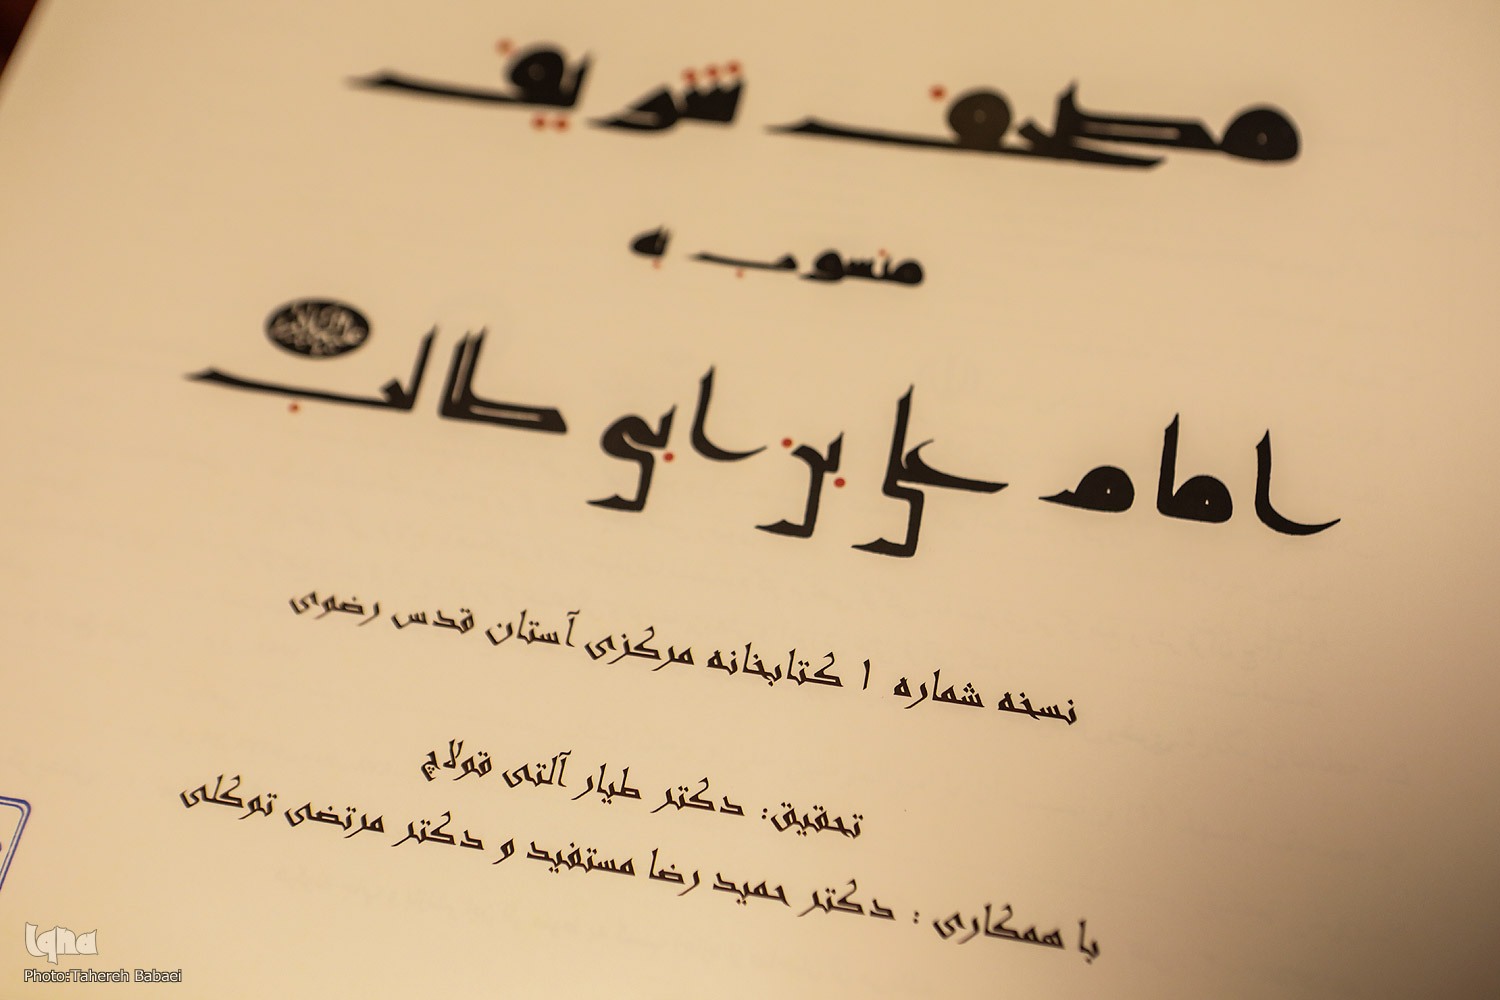 مصحف شریف
منسوب به
امام علی بن ابی طالب
نسخه شماره ۱ کتابخانه مرکزی آستان قدس رضوی
تحقیق: دکتر طیار آلتی قولاچ
با همکاری : دکتر حمید رضا مستفید و دکتر مرتضی توکلی
Iqna
Photo:Tahereh Babaei